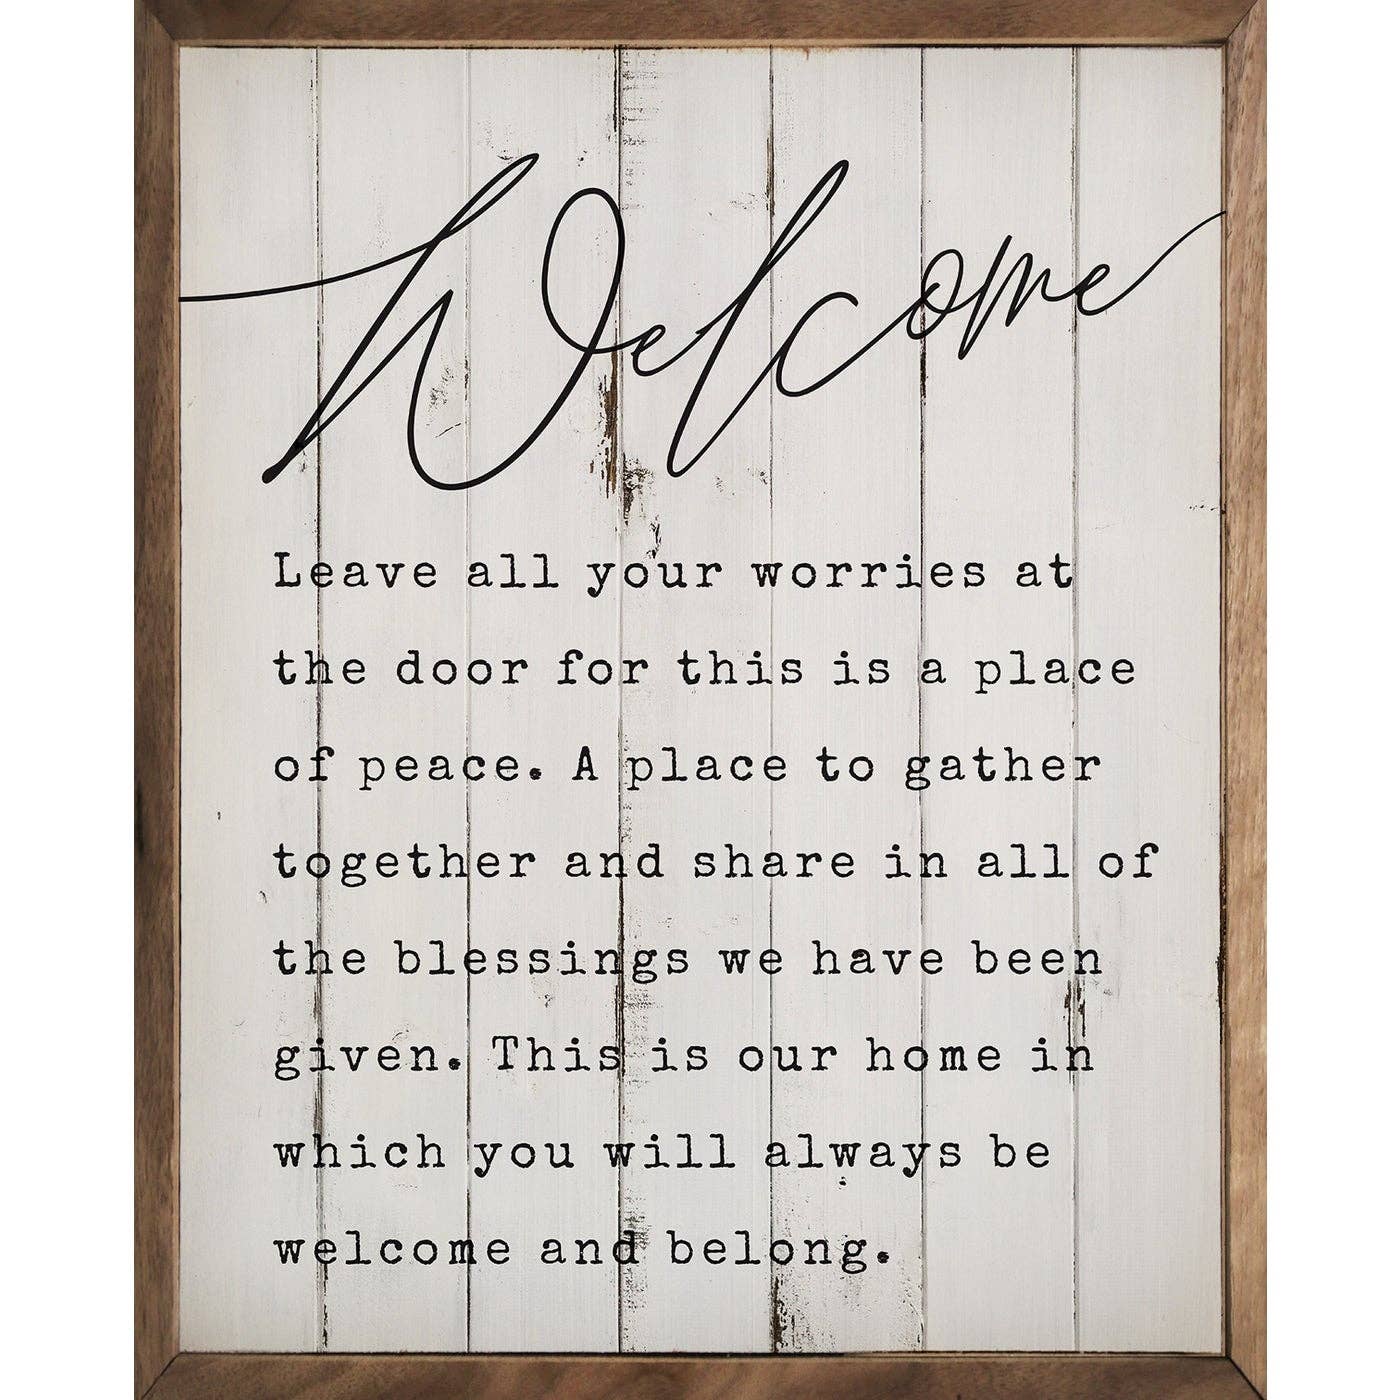 Welcome
Leave all your worries at
the door for this is a place
of peace. A place to gather
together and share in all of
the blessings we have been
given. This is our home in
which you will always be
welcome and belong.